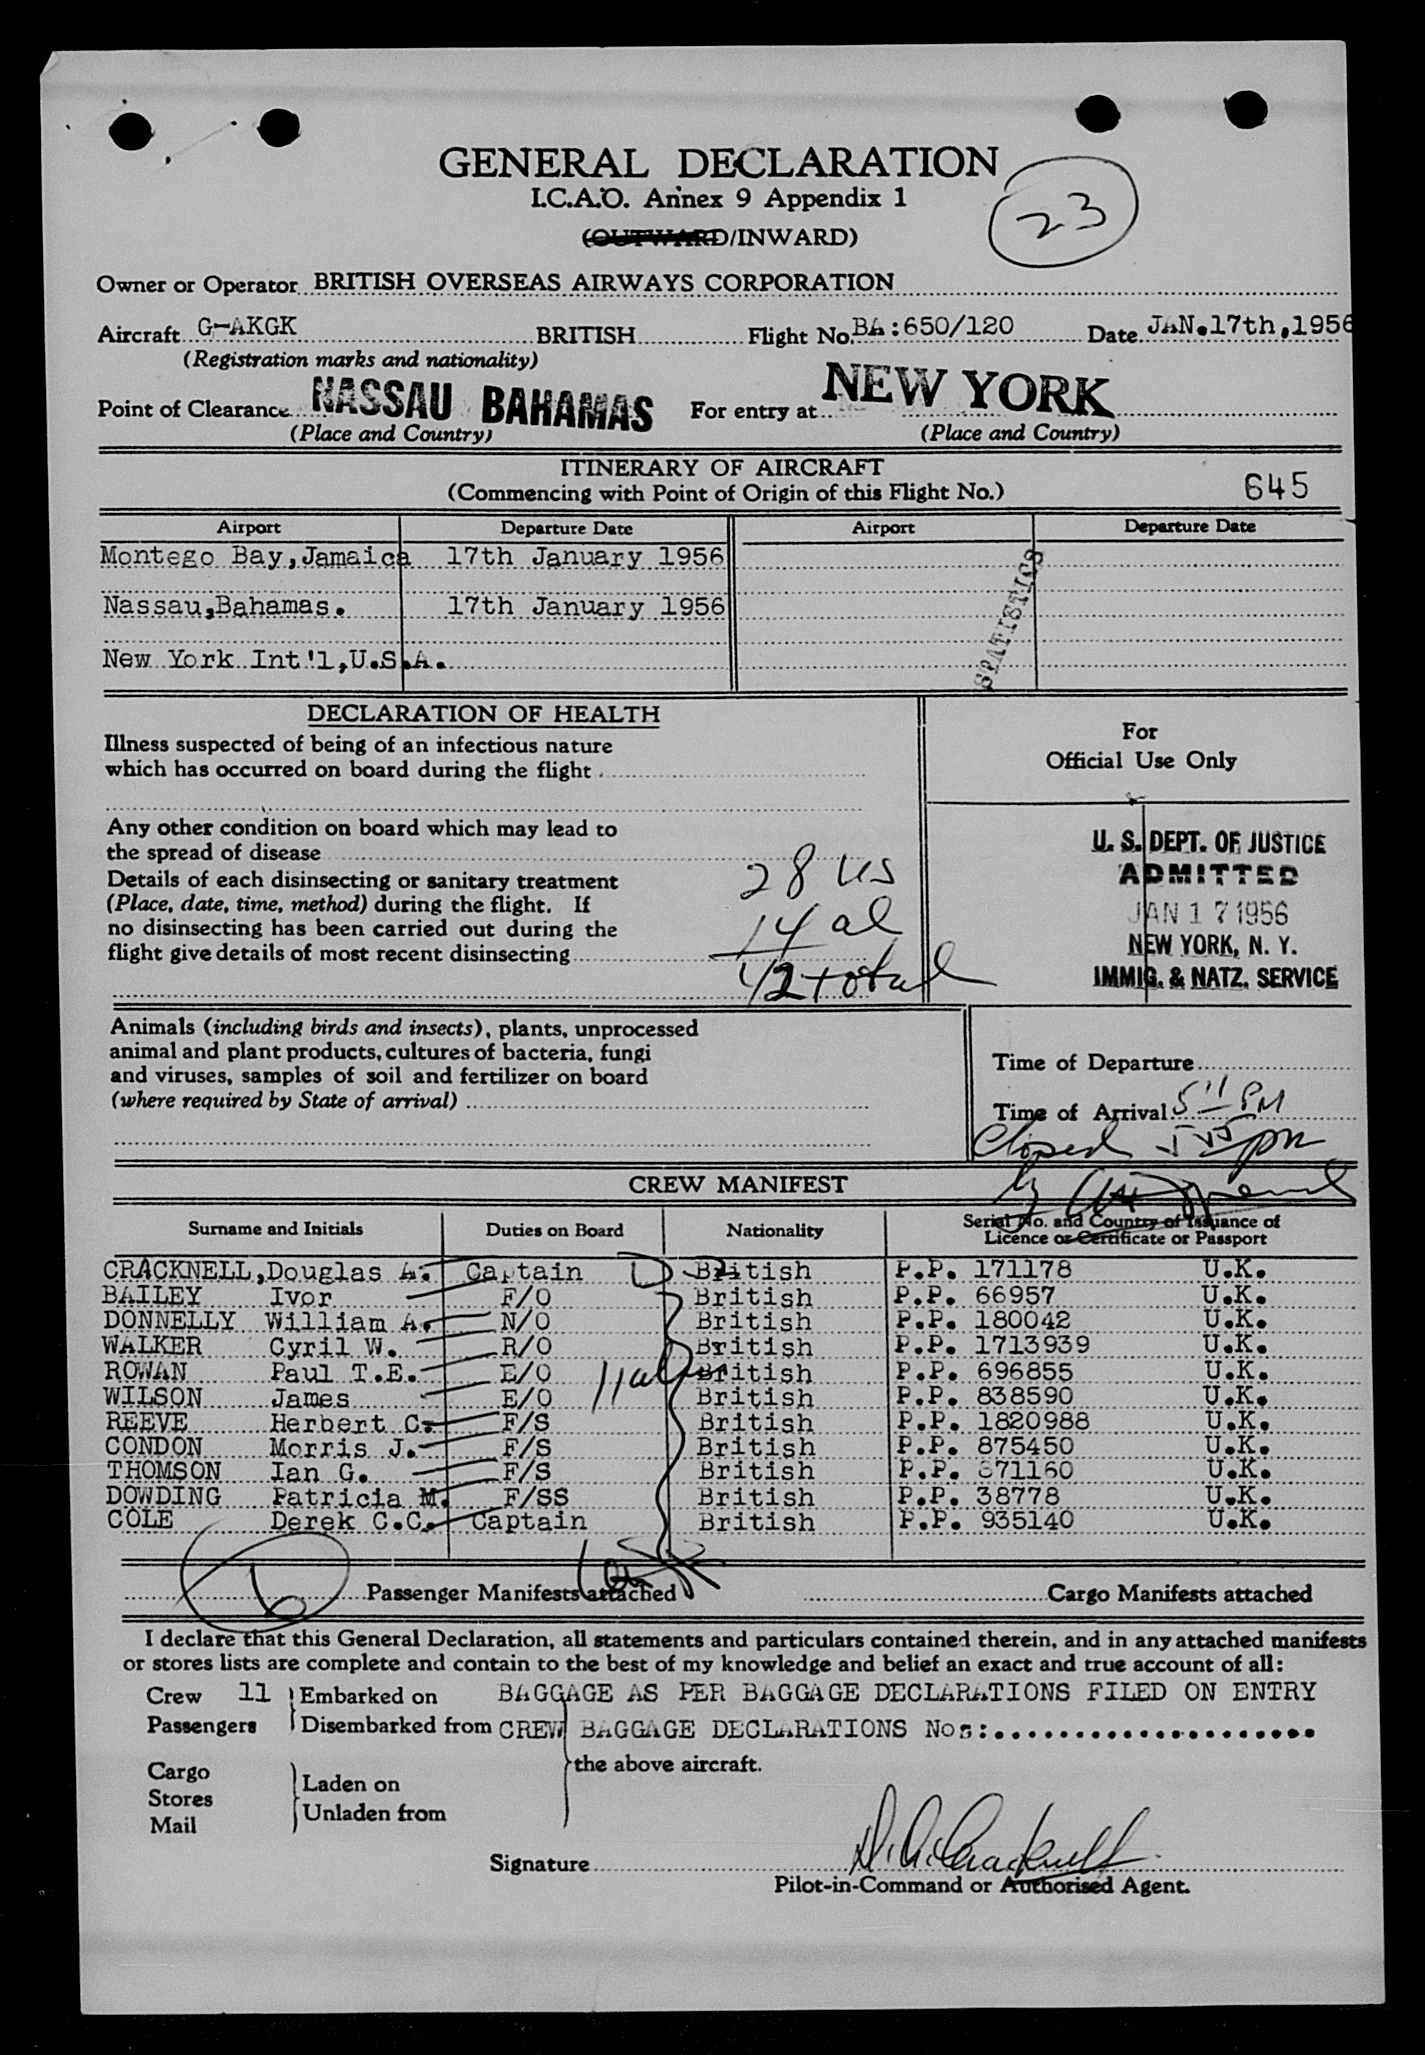 GENERAL DECLARATION
I.C.A.O. Annex 9 Appendix 1
23
(OUTWARD/INWARD)
Owner or Operator BRITISH OVERSEAS AIRWAYS CORPORATION
Aircraft G-AKGK BRITISH Flight No. BA:650/120 Date JAN.17th,1956
(Registration marks and nationality)
Point of Clearance NASSAU BAHAMAS For entry at NEW YORK
(Place and Country) (Place and Country)
ITINERARY OF AIRCRAFT
(Commencing with Point of Origin of this Flight No.) 645
Airport Departure Date Airport Departure Date
Montego Bay,Jamaica 17th January 1956
Nassau,Bahamas. 17th January 1956
STATISTICS
New York Int'l,U.S.A.
DECLARATION OF HEALTH
Illness suspected of being of an infectious nature
which has occurred on board during the flight
For
Official Use Only
Any other condition on board which may lead to
the spread of disease
Details of each disinsecting or sanitary treatment
(Place, date, time, method) during the flight. If
no disinsecting has been carried out during the
flight give details of most recent disinsecting
28 us
14 al
42 total
U. S. DEPT. OF JUSTICE
ADMITTED
JAN 17 1956
NEW YORK, N. Y.
IMMIG. & NATZ. SERVICE
Animals (including birds and insects), plants, unprocessed
animal and plant products, cultures of bacteria, fungi
and viruses, samples of soil and fertilizer on board
(where required by State of arrival)
Time of Departure
Time of Arrival 5 11 PM
Closed 5 pm
by
CREW MANIFEST
Surname and Initials Duties on Board Nationality Serial No. and Country of Issuance of
Licence or Certificate or Passport
CRACKNELL,Douglas A. Captain British P.P. 171178 U.K.
BAILEY Ivor F/O British P.P. 66957 U.K.
DONNELLY William A. N/O British P.P. 180042 U.K.
WALKER Cyril W. R/O British P.P. 1713939 U.K.
ROWAN Paul T.E. E/O British P.P. 696855 U.K.
WILSON James E/O 11 al British P.P. 838590 U.K.
REEVE Herbert C. F/S British P.P. 1820988 U.K.
CONDON Morris J. F/S British P.P. 875450 U.K.
THOMSON Ian G. F/S British P.P. 871160 U.K.
DOWDING Patricia M. F/SS British P.P. 38778 U.K.
COLE Derek C.C. Captain British P.P. 935140 U.K.
6 Passenger Manifests attached Cargo Manifests attached
I declare that this General Declaration, all statements and particulars contained therein, and in any attached manifests
or stores lists are complete and contain to the best of my knowledge and belief an exact and true account of all:
Crew 11 Embarked on BAGGAGE AS PER BAGGAGE DECLARATIONS FILED ON ENTRY
Passengers Disembarked from CREW BAGGAGE DECLARATIONS Nos:....................
the above aircraft.
Cargo
Stores
Mail
Laden on
Unladen from
Signature D.A. Cracknell
Pilot-in-Command or Authorised Agent.